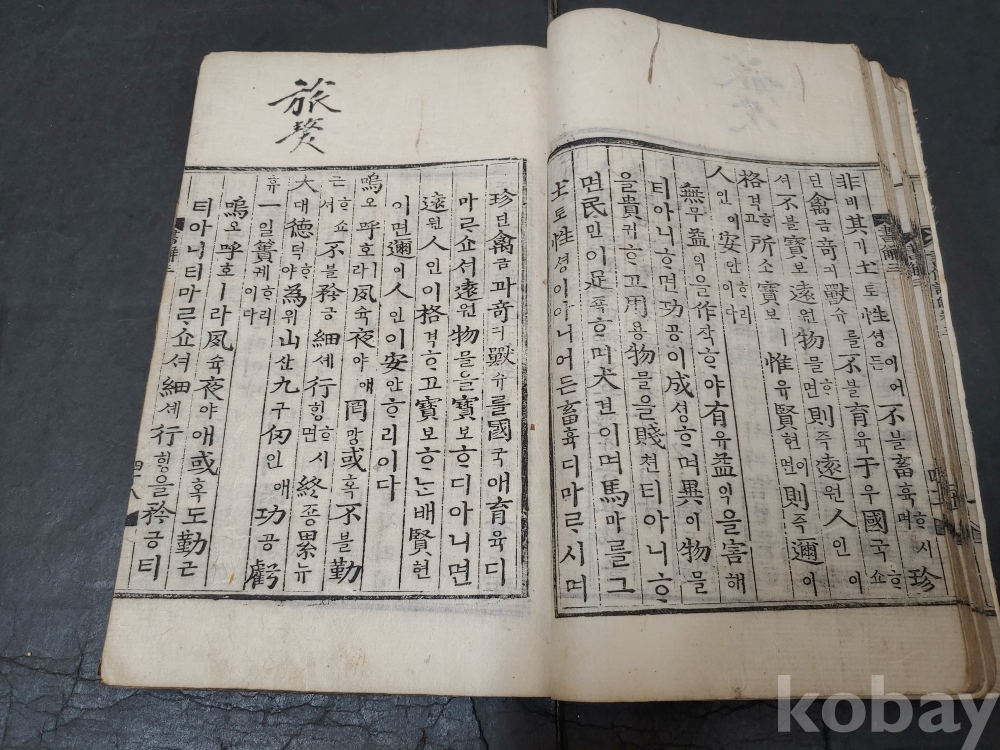 非비其기土토性셩이어든不블畜휵ᄒᆞ시며珍
딘禽금奇긔獸슈를不블育육于우國국ᄒᆞ쇼
셔不블寶보遠원物믈ᄒᆞ면則즉遠원人인이
格격ᄒᆞ고所소寶보ㅣ惟유賢현이면則즉邇이
人인이安안ᄒᆞ리이다
無무益익을作작ᄒᆞ야有유益익을害해
티아니ᄒᆞ면功공이成셩ᄒᆞ며異이物믈
을貴귀ᄒᆞ고用용物믈을賤쳔티아니ᄒᆞ
면民민이足죡ᄒᆞ며犬견이며馬마를그
土토性셩이아니어든畜휵디마ᄅᆞ시며
旅獒
珍딘禽금과奇긔獸슈를國국애育육디
마ᄅᆞ쇼셔遠원物믈을寶보ᄒᆞ디아니면
遠원人인이格격ᄒᆞ고寶보ᄒᆞᄂᆞᆫ배賢현
이면邇이人인이安안ᄒᆞ리이다
嗚오呼호ㅣ라夙슉夜야애罔망或혹不블勤
근ᄒᆞ쇼셔不블矜긍細셰行ᄒᆡᆼᄒᆞ시면終죵累뉴
大대德덕ᄒᆞ야爲위山산九구仞인애功공虧
휴一일簣궤ᄒᆞ리이다
嗚오呼호ㅣ라夙슉夜야애或혹도勤근
티아니티마ᄅᆞ쇼셔細셰行ᄒᆡᆼ을矜긍티
四十八
kobay